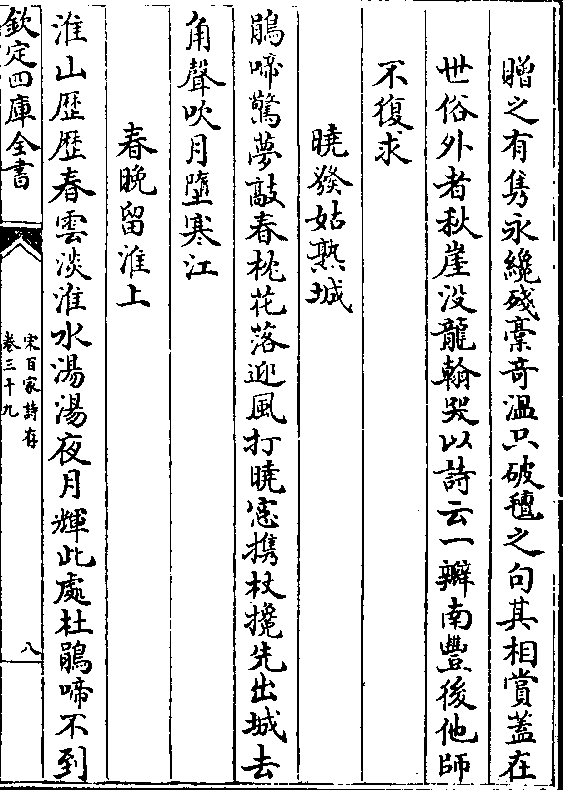 贈之有雋永纔殘藁奇溫只破氊之句其相賞蓋在
世俗外者秋崖没龍翰哭以詩云一瓣南豐後他師
不復求
曉發姑熟城
鵑啼驚夢敲春枕花落迎風打曉窓携杖攙先出城去
角聲吹月墮寒江
春晚留淮上
淮山歴歴春雲淡淮水湯湯夜月輝此處杜鵑啼不到
欽定四庫全書
宋百家詩存
卷三十九
八